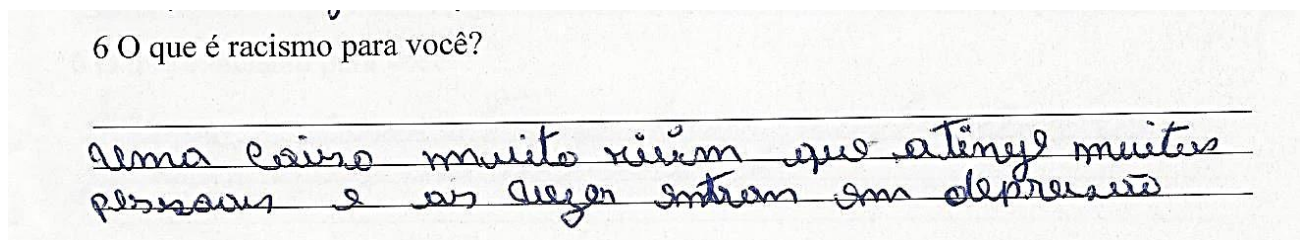 6 O que é racismo para você?
uma coisa muito ruim que atinge muitas
pessoas e as vezes entram em depressão